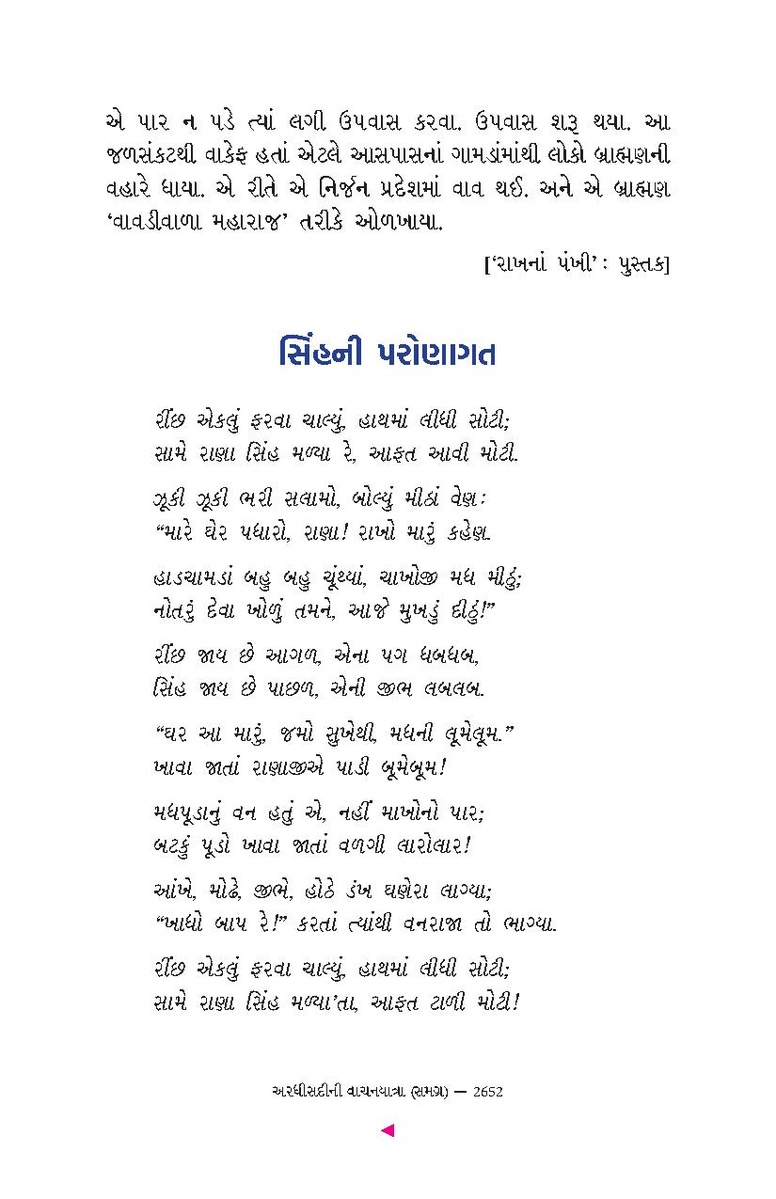 એ પાર ન પડે ત્યાં લગી ઉપવાસ કરવા. ઉપવાસ શરૂ થયા. આ
જળસંકટથી વાકેફ હતાં એટલે આસપાસનાં ગામડાંમાંથી લોકો બ્રાહ્મણની
વહારે ધાયા. એ રીતે એ નિર્જન પ્રદેશમાં વાવ થઈ. અને એ બ્રાહ્મણ
‘વાવડીવાળા મહારાજ’ તરીકે ઓળખાયા.
[‘રાખનાં પંખી’ : પુસ્તક]
સિંહની પરોણાગત
રીંછ એકલું ફરવા ચાલ્યું, હાથમાં લીધી સોટી;
સામે રાણા સિંહ મળ્યા રે, આફત આવી મોટી.
ઝૂકી ઝૂકી ભરી સલામો, બોલ્યું મીઠાં વેણ :
“મારે ઘેર પધારો, રાણા! રાખો મારું કહેણ.
હાડચામડાં બહુ બહુ ચૂંથ્યાં, ચાખોજી મધ મીઠું;
નોતરું દેવા ખોળું તમને, આજે મુખડું દીઠું!”
રીંછ જાય છે આગળ, એના પગ ધબધબ,
સિંહ જાય છે પાછળ, એની જીભ લબલબ.
“ઘર આ મારું, જમો સુખેથી, મધની લૂમેલૂમ.”
ખાવા જાતાં રાણાજીએ પાડી બૂમેબૂમ!
મધપૂડાનું વન હતું એ, નહીં માખોનો પાર;
બટકું પૂડો ખાવા જાતાં વળગી લારોલાર!
આંખે, મોઢે, જીભે, હોઠે ડંખ ઘણેરા લાગ્યા;
“ખાધો બાપ રે!” કરતાં ત્યાંથી વનરાજા તો ભાગ્યા.
રીંછ એકલું ફરવા ચાલ્યું, હાથમાં લીધી સોટી;
સામે રાણા સિંહ મળ્યા’તા, આફત ટાળી મોટી!
અરધીસદીની વાચનયાત્રા (સમગ્ર) — 2652